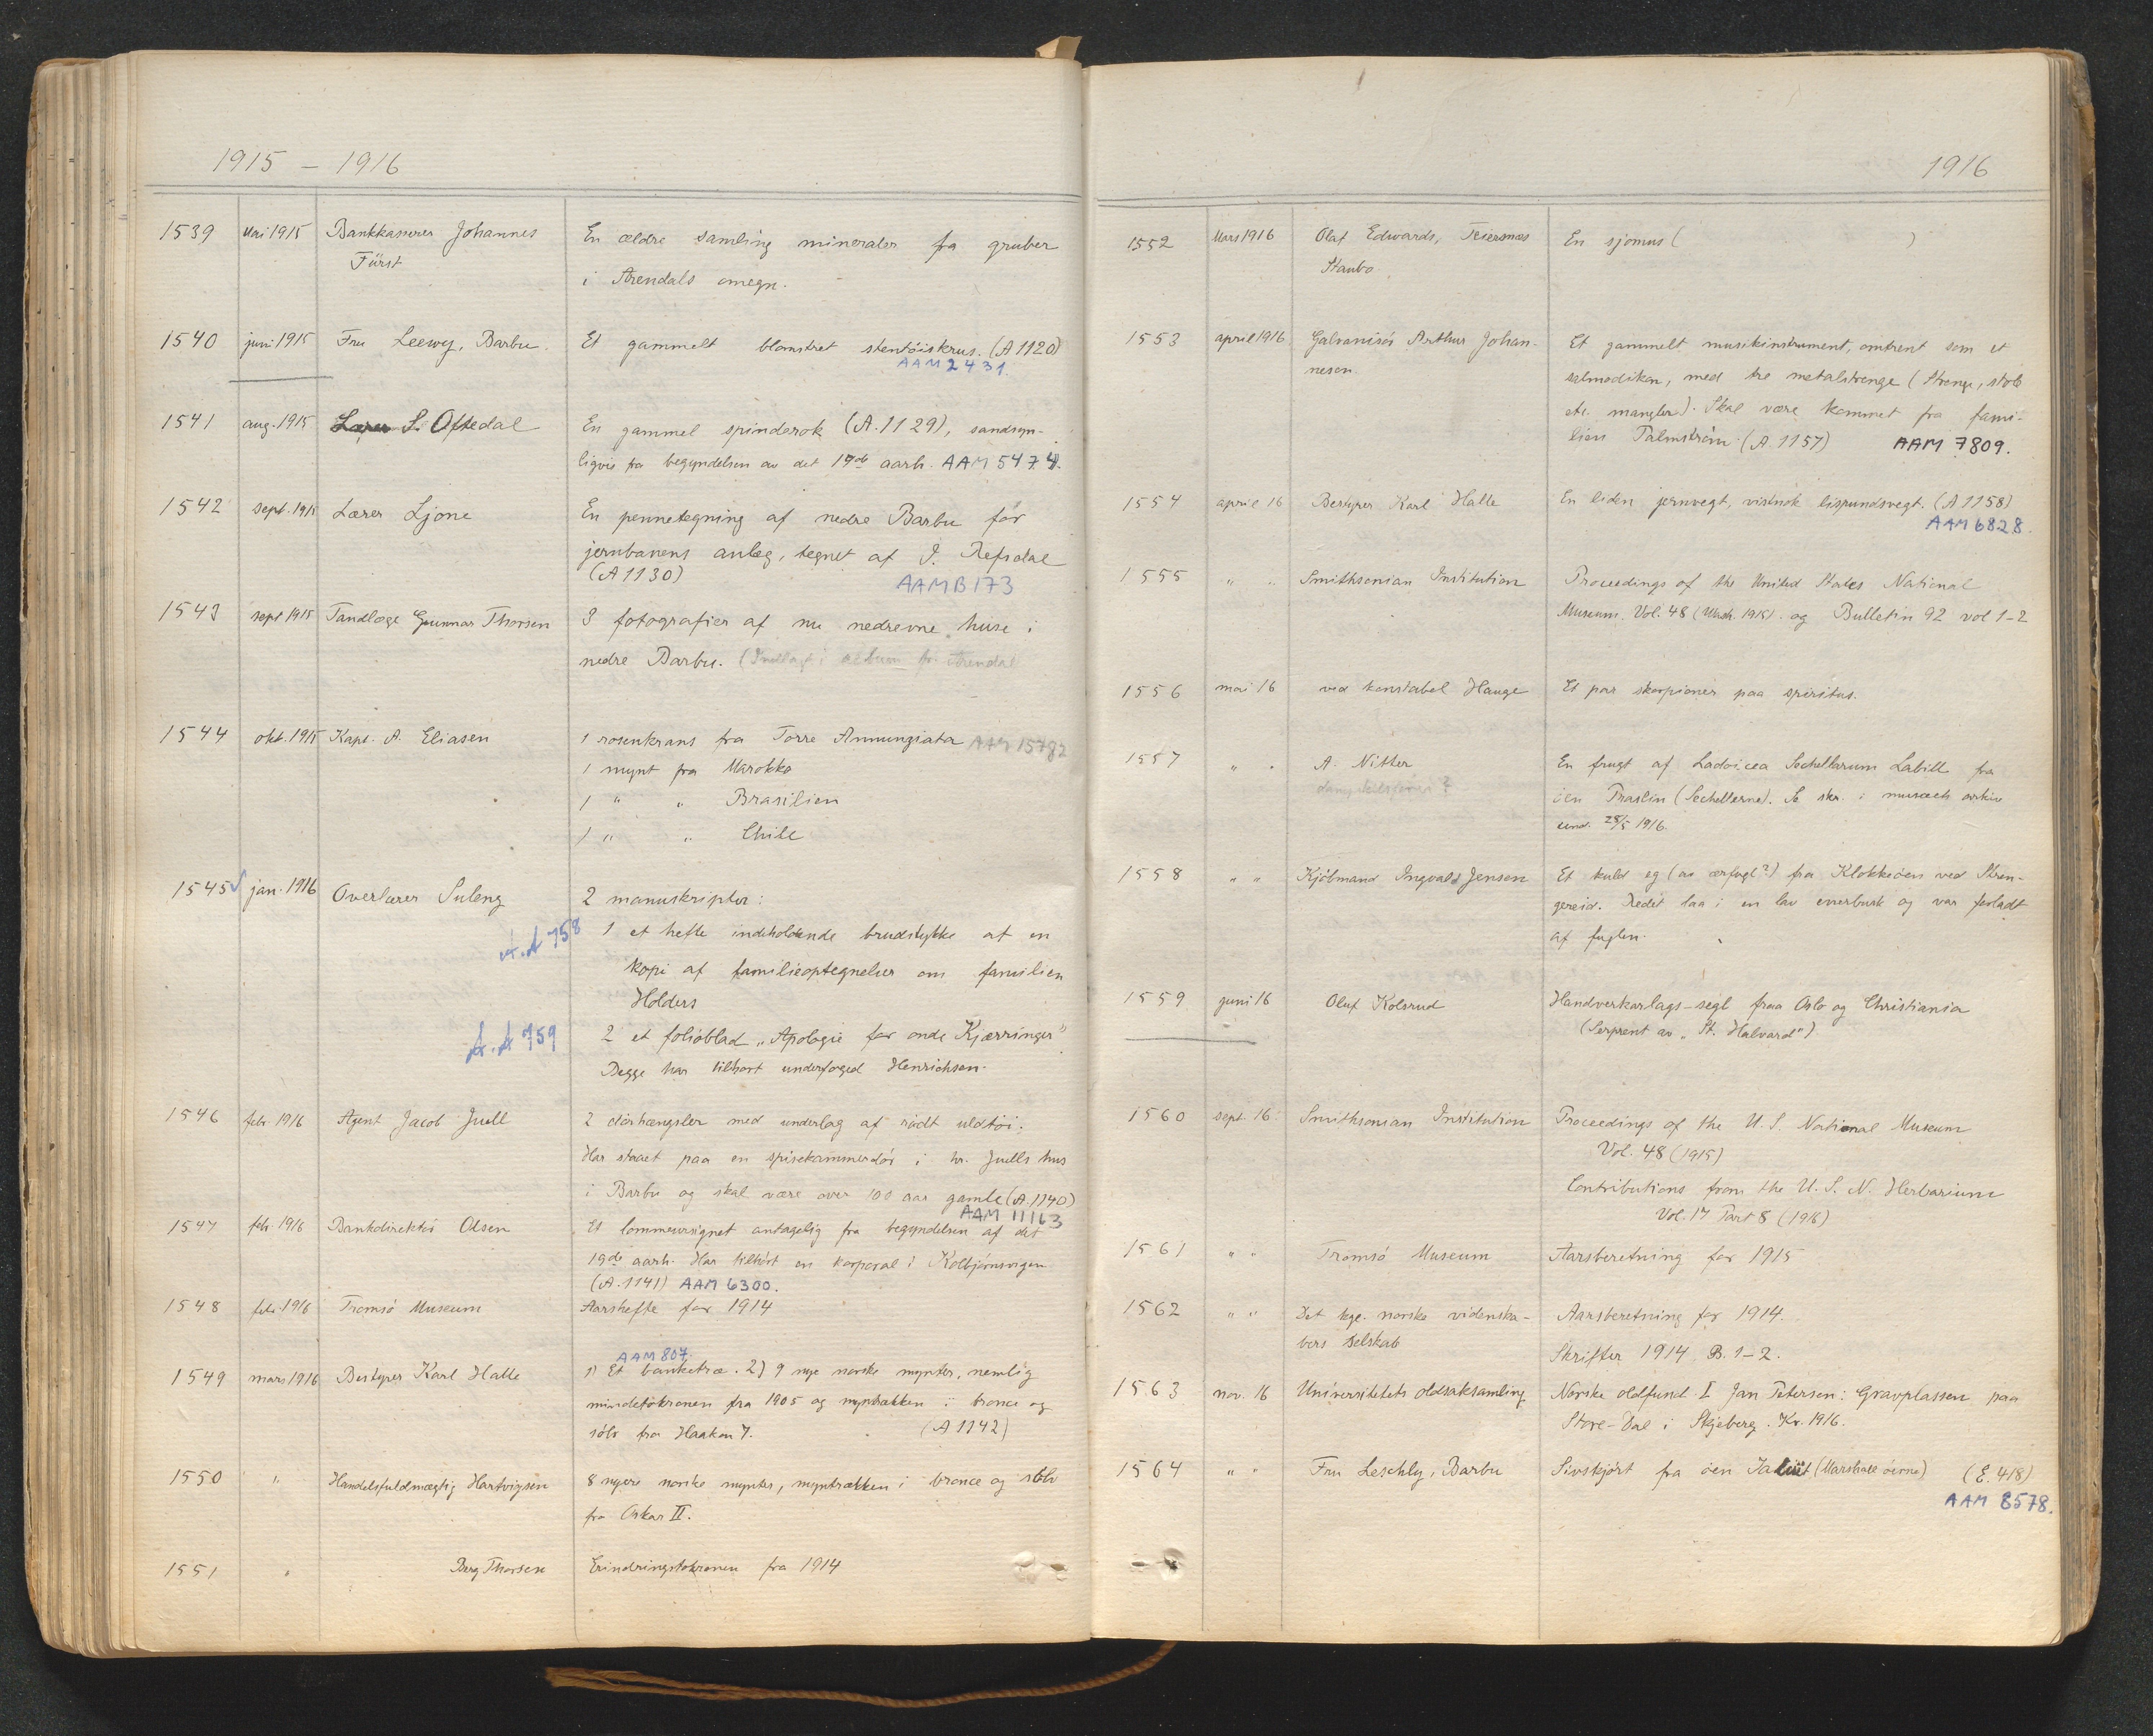 1915 – 1916
1539 Mai 1915 Bankkasserer Johannes Fürst
En ældre samling mineraler fra gruber
i Arendals omegn.
1540 juni 1915 Fru Leewy, Barbu.
Et gammelt blomstret stentöiskrus. (A 1120)
AAM 2431.
1541 aug. 1915 Lærer S. Oftedal
En gammel spinderok (A. 1129), sandsyn-
ligvis fra begyndelsen av det 19de aarh. AAM 5474.
1542 sept. 1915 Lærer Ljone
En pennetegning af nedre Barbu för
jernbanens anlæg, tegnet af J. Refsdal
(A 1130)
AAMB 173
1543 sept 1915 Tandlæge Gunnar Thorsen
3 fotografier af nu nedrevne huse i
nedre Barbu. (Indlagt i album fr. Arendal
1544 okt. 1915 Kapt. A. Eliasen
1 rosenkrans fra Torre Annunziata AAM 15782
1 mynt fra Marokko
1 " " Brasilien
1 " " Chile
1545 jan. 1916 Overlærer Suleng
2 manuskripter:
A.A 758
1 et hefte indeholdende brudstykke af en
kopi af familieoptegnelser om familien
Holders
A.A 759
2 et folioblad „Apologie for onde Kjærringer"
Begge har tilhört underfoged Henrichsen.
1546 febr. 1916 Agent Jacob Juell
2 dörhængsler med underlag af rödt uldtöi.
Har staaet paa en spisekammerdör i hr. Juells hus
i Barbu og skal være over 100 aar gamle (A. 1140)
AAM 11163
1547 febr. 1916 Bankdirektör Olsen
Et lommeursignet antagelig fra begyndelsen af det
19de aarh. Har tilhört en korporal i Kolbjörnsvigen
(A. 1141) AAM 6300.
1548 febr. 1916 Tromsö Museum
Aarshefte for 1914
AAM 807.
1549 mars 1916 Bestyrer Karl Halle
1) Et banketræ. 2) 9 nye norske mynter, nemlig
mindetokronen fra 1905 og myntrækken i bronce og
sölv fra Haakon 7. (A 1142)
1550 " Handelsfuldmægtig Hartvigsen
8 nyere norske mynter, myntrækken i bronce og sölv
fra Oskar II.
1551 " Berg Thorsen
Erindringstokronen fra 1914
1916
1552 Mars 1916 Olaf Edwards,
Stanbo.
En sjömus ( )
1553 april 1916 Galvanisör Arthur Johan-
nesen.
Et gammelt musikinstrument, omtrent som et
salmodikon, med tre metalstrenge (Strenge, stol
etc. mangler). Skal være kommet fra fami-
lien Palmström. (A 1157) AAM 7809.
1554 april 16 Bestyrer Karl Halle
En liden jernvegt, vistnok lispundsvegt. (A 1158)
AAM 6828.
1555 " " Smithsonian Institution
Proceedings of the United States National
Museum. Vol. 48 (Wash. 1915). og Bulletin 92 vol 1-2
1556 mai 16 ved konstabel Hauge
Et par skorpioner paa spiritus.
1557 " " A. Nitter
En frugt af Lodoicea Sechellarum Labill fra
öen Praslin (Sechellerne). Se skr. i museets arkiv
und. 28/5 1916.
1558 " " Kjöbmand Ingvald Jensen
Et kuld eg (av ærfugl?) fra Klokkeöen ved Stren-
gereid. Redet laa i en lav enerbusk og var forladt
af fuglen.
1559 juni 16 Oluf Kolsrud
Handverkarlags-segl fraa Oslo og Christiania
(Serprent av „St. Halvard").
1560 sept. 16. Smithsonian Institution
Proceedings of the U. S. National Museum
Vol. 48 (1915)
Contributions from the U. S. N. Herbarium
Vol. 17 Part 8 (1916)
1561 " " Tromsö Museum
Aarsberetning for 1915
1562 " " Det kgl. norske videnska-
bers selskab
Aarsberetning for 1914.
Skrifter 1914 B. 1-2.
1563 nov. 16 Universitetets oldsaksamling
Norske oldfund I Jan Petersen: Gravplassen paa
Store-Dal i Skjeberg. Kr. 1916.
1564 " " Fru Leschly, Barbu
Sivskjört fra öen Jaluit (Marshall öerne) (E. 418)
AAM 8578.